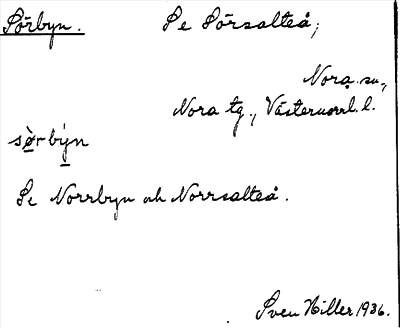 Sörbyn. Se Sörsalteå;
Nora sn,
Nora tg., Västernorrl. l.
sö̀rbýn
Se Norrbyn och Norrsalteå.
Sven Hiller 1936.